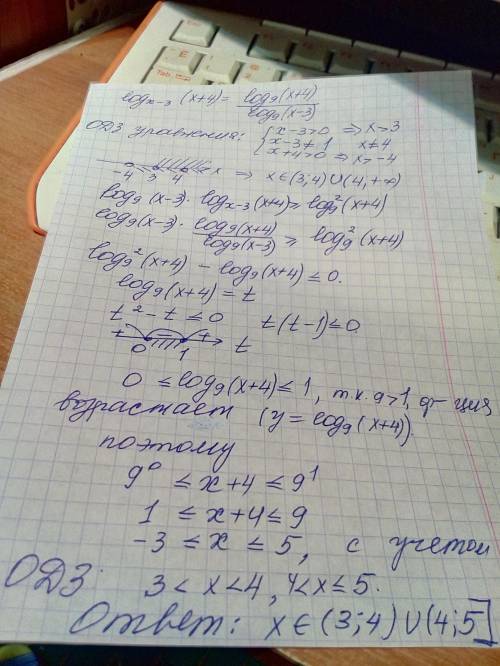 log_{x-3} (x+4) = \frac{log_9 (x+4)}{log_9 (x-3)}
ОДЗ уравнения: { x-3>0 ⇒ x>3
x-3≠1 x≠4
x+4>0 ⇒ x>-4
-4 3 4 x ⇒ x∈(3;4)∪(4,+∞)
log_9 (x-3) · log_{x-3} (x+4) ≥ log_9^2 (x+4)
log_9 (x-3) · \frac{log_9 (x+4)}{log_9 (x-3)} ≥ log_9^2 (x+4)
log_9^2 (x+4) - log_9 (x+4) ≤ 0.
log_9 (x+4) = t
t^2 - t ≤ 0 t(t-1) ≤ 0
+ 0 - 1 + t
0 ≤ log_9 (x+4) ≤ 1, т.к. 9>1, ф-ция
возрастает (y = log_9 (x+4)).
поэтому
9^0 ≤ x+4 ≤ 9^1
1 ≤ x+4 ≤ 9
-3 ≤ x ≤ 5, с учетом
ОДЗ: 3 < x < 4, 4 < x ≤ 5.
Ответ: x ∈ (3;4) ∪ (4;5]